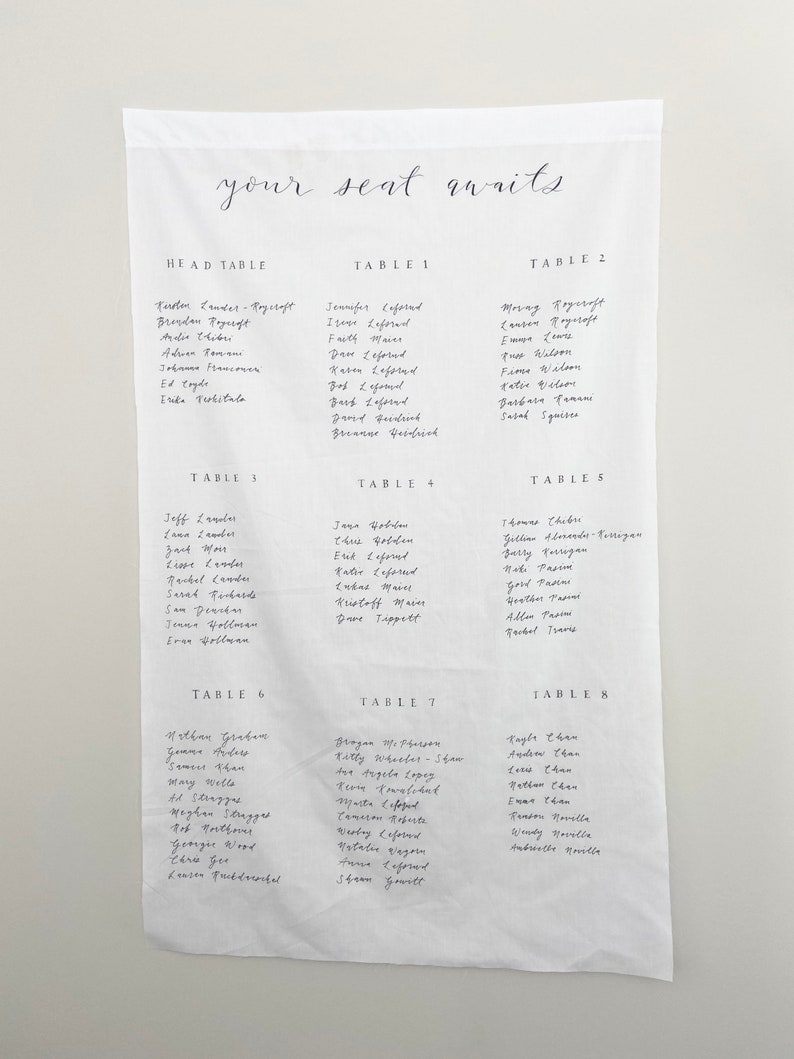 your seat awaits
HEAD TABLE
Kirsten Lander-Roycroft
Brendan Roycroft
Andie Chibri
Adrian Ramani
Johanna Franconeri
Ed
Erika Keskitalo
TABLE 1
Jennifer Lefsrud
Irene Lefsrud
Faith Maier
Dave Lefsrud
Karen Lefsrud
Bob Lefsrud
Barb Lefsrud
David Heidrich
Breanne Heidrich
TABLE 2
Morag Roycroft
Lauren Roycroft
Emma Lewis
Russ Wilson
Fiona Wilson
Katie Wilson
Barbara Ramani
Sarah Squires
TABLE 3
Jeff Lander
Lana Lander
Zack Moir
Lisse Lander
Rachel Lander
Sarah Richards
Sam Denchar
Jenna Hollman
Evan Hollman
TABLE 4
Jana Holden
Chris Holden
Erik Lefsrud
Katie Lefsrud
Lukas Maier
Kristoff Maier
Dave Tippett
TABLE 5
Thomas Chibri
Gillian Alexander-Kerrigan
Barry Kerrigan
Niki Pasini
Gord Pasini
Heather Pasini
Allen Pasini
Rachel Travis
TABLE 6
Nathan Graham
Gemma Anders
Sameer Khan
Mary Wells
Al Straggas
Meghan Straggas
Rob Northover
Georgie Wood
Chris Gee
Lauren Ruckdaeschel
TABLE 7
Brogan McPherson
Kitty Wheeler-Shaw
Ana Angela Lopey
Kevin Kowalchuk
Marta Lefsrud
Cameron Roberts
Wesley Lefsrud
Natalie Wagorn
Anna Lefsrud
Shawn Gowitt
TABLE 8
Kayla Chan
Andrew Chan
Lexis Chan
Nathan Chan
Emma Chan
Ranson Novilla
Wendy Novilla
Ambrielle Novilla